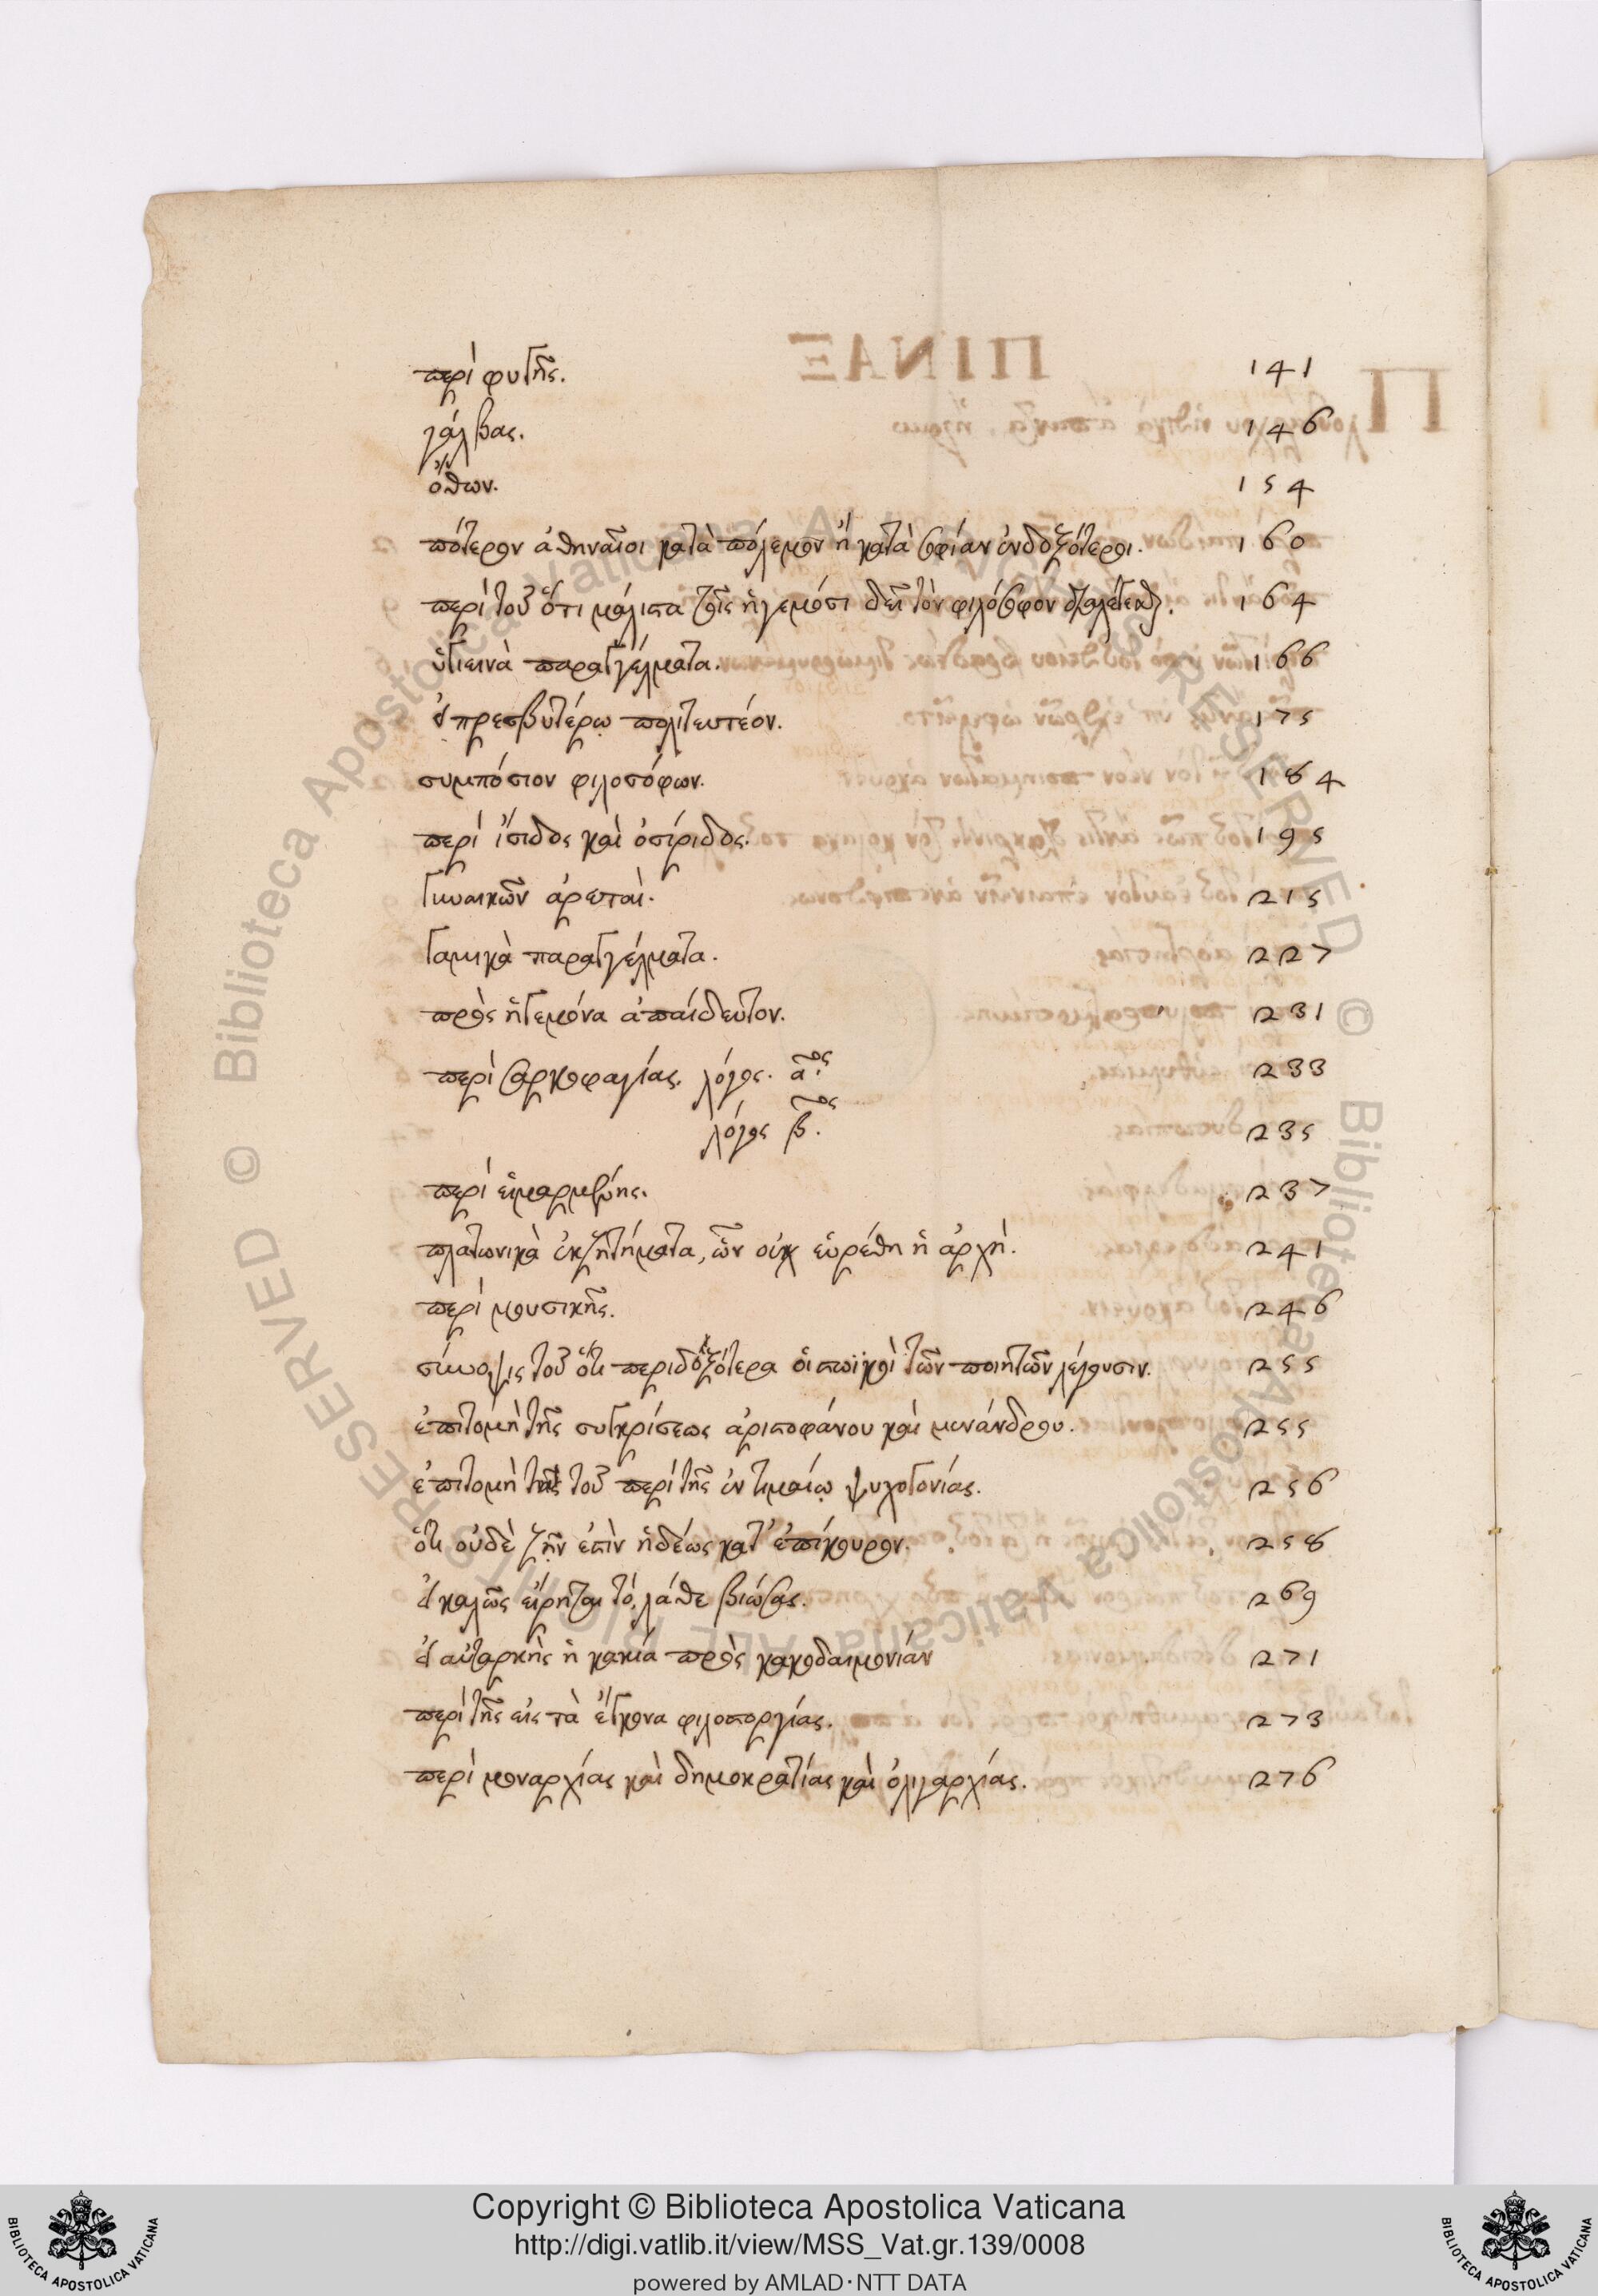 περὶ φυγῆς. 141
γάλβας. 146
ὄθων. 154
πότερον ἀθηναῖοι κατὰ πόλεμον ἢ κατὰ σοφίαν ἐνδοξότεροι. 160
περὶ τοῦ ὅτι μάλιστα τοῖς ἡγεμόσι δεῖ τὸν φιλόσοφον διαλέγεσθαι. 164
ὑγιεινὰ παραγγέλματα. 166
εἰ πρεσβυτέρῳ πολιτευτέον. 175
συμπόσιον φιλοσόφων. 184
περὶ ἴσιδος καὶ ὀσίριδος. 195
γυναικῶν ἀρεταὶ. 215
γαμικὰ παραγγέλματα. 227
πρὸς ἡγεμόνα ἀπαίδευτον. 231
περὶ σαρκοφαγίας. λόγος. α^ος. 233
λόγος β^ος. 235
περὶ εἱμαρμένης. 237
πλατωνικὰ ἐκζητήματα, ὧν οὐχ εὑρέθη ἡ ἀρχὴ. 241
περὶ μουσικῆς. 246
σύνοψις τοῦ ὅτι περιδοξότερα οἱ στωϊκοὶ τῶν ποιητῶν λέγουσιν. 255
ἐπιτομὴ τῆς συγκρίσεως ἀριστοφάνου καὶ μενάνδρου. 255
ἐπιτομὴ τῆς τοῦ περὶ τῆς ἐν τιμαίῳ ψυχογονίας. 256
ὅτι οὐδὲ ζῆν ἐστὶν ἡδέως κατ' ἐπίκουρον. 258
εἰ καλῶς εἴρηται τὸ, λάθε βιώσας. 269
εἰ αὐτάρκης ἡ κακία πρὸς κακοδαιμονίαν 271
περὶ τῆς εἰς τὰ ἔγγονα φιλοστοργίας. 273
περὶ μοναρχίας καὶ δημοκρατίας καὶ ὀλιγαρχίας. 276
Copyright © Biblioteca Apostolica Vaticana
http://digi.vatlib.it/view/MSS_Vat.gr.139/0008
powered by AMLAD·NTT DATA